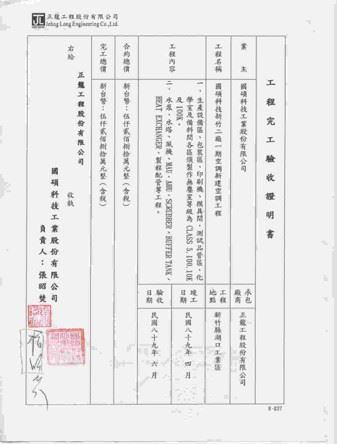 正龍工程股份有限公司
Jehng Long Engineering Co.,Ltd.
工程完工驗收證明書
業主
國碩科技工業股份有限公司
承包廠商
正龍工程股份有限公司
工程名稱
國碩科技新竹二廠一期空調新建空調工程
工程地點
新竹縣湖口工業區
工程內容
一、生產設備區、包裝區、印刷機、模具間、測試品管區、化
學室及備料間各區須製作無塵室等級為 CLASS 5.100.10K
及 100K。
二、水泵、水塔、風機、MAU、AHU、SCRUBBER、BUFFER TANK、
HEAT EXCHANGER、製程配管等工程。
竣工日期
民國八十九年四月
驗收日期
民國八十九年六月
合約總價
新台幣：伍仟貳佰捌拾萬元整（含稅）
完工總價
新台幣：伍仟貳佰捌拾萬元整（含稅）
右給
正龍工程股份有限公司
收執
國碩科技工業股份有限公司
負責人：張昭焚
8-037